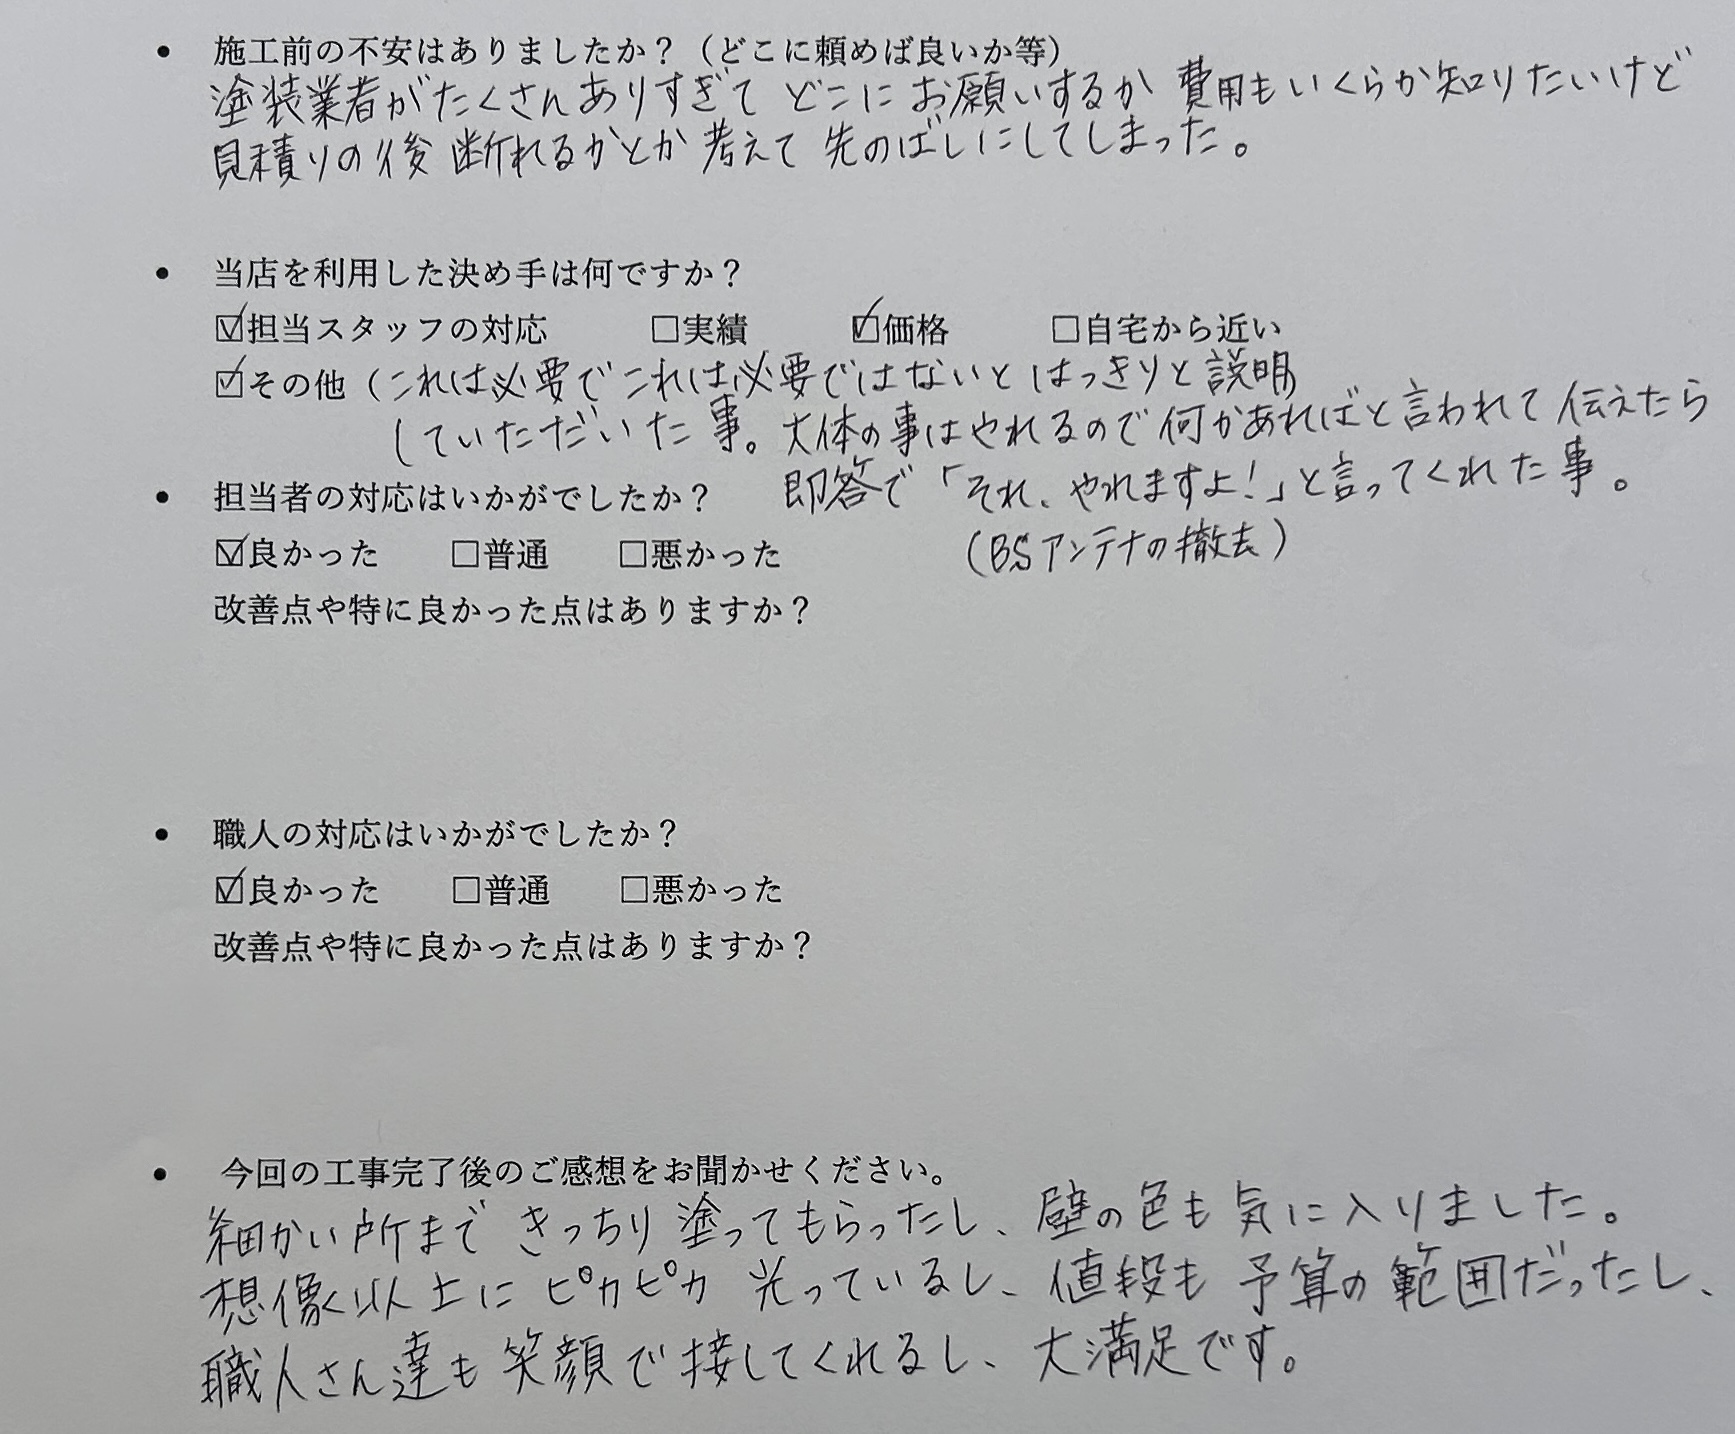 • 施工前の不安はありましたか？（どこに頼めば良いか等）
塗装業者がたくさんありすぎて どこにお願いするか 費用もいくらか知りたいけど
見積りの後 断れるかとか 考えて 先のばしにしてしまった。
• 当店を利用した決め手は何ですか？
☑担当スタッフの対応 □実績 ☑価格 □自宅から近い
☑その他（これは必要でこれは必要ではないと はっきりと 説明
していただいた事。大体の事はやれるので何かあればと言われて 伝えたら
即答で「それ、やれますよ！」と言ってくれた事。
（BSアンテナの撤去）
• 担当者の対応はいかがでしたか？
☑良かった □普通 □悪かった
改善点や特に良かった点はありますか？
• 職人の対応はいかがでしたか？
☑良かった □普通 □悪かった
改善点や特に良かった点はありますか？
• 今回の工事完了後のご感想をお聞かせください。
細かい所まで きっちり 塗ってもらったし、壁の色も気に入りました。
想像以上に ピカピカ 光っているし、値段も 予算の範囲だったし、
職人さん達も 笑顔で接してくれるし、大満足です。